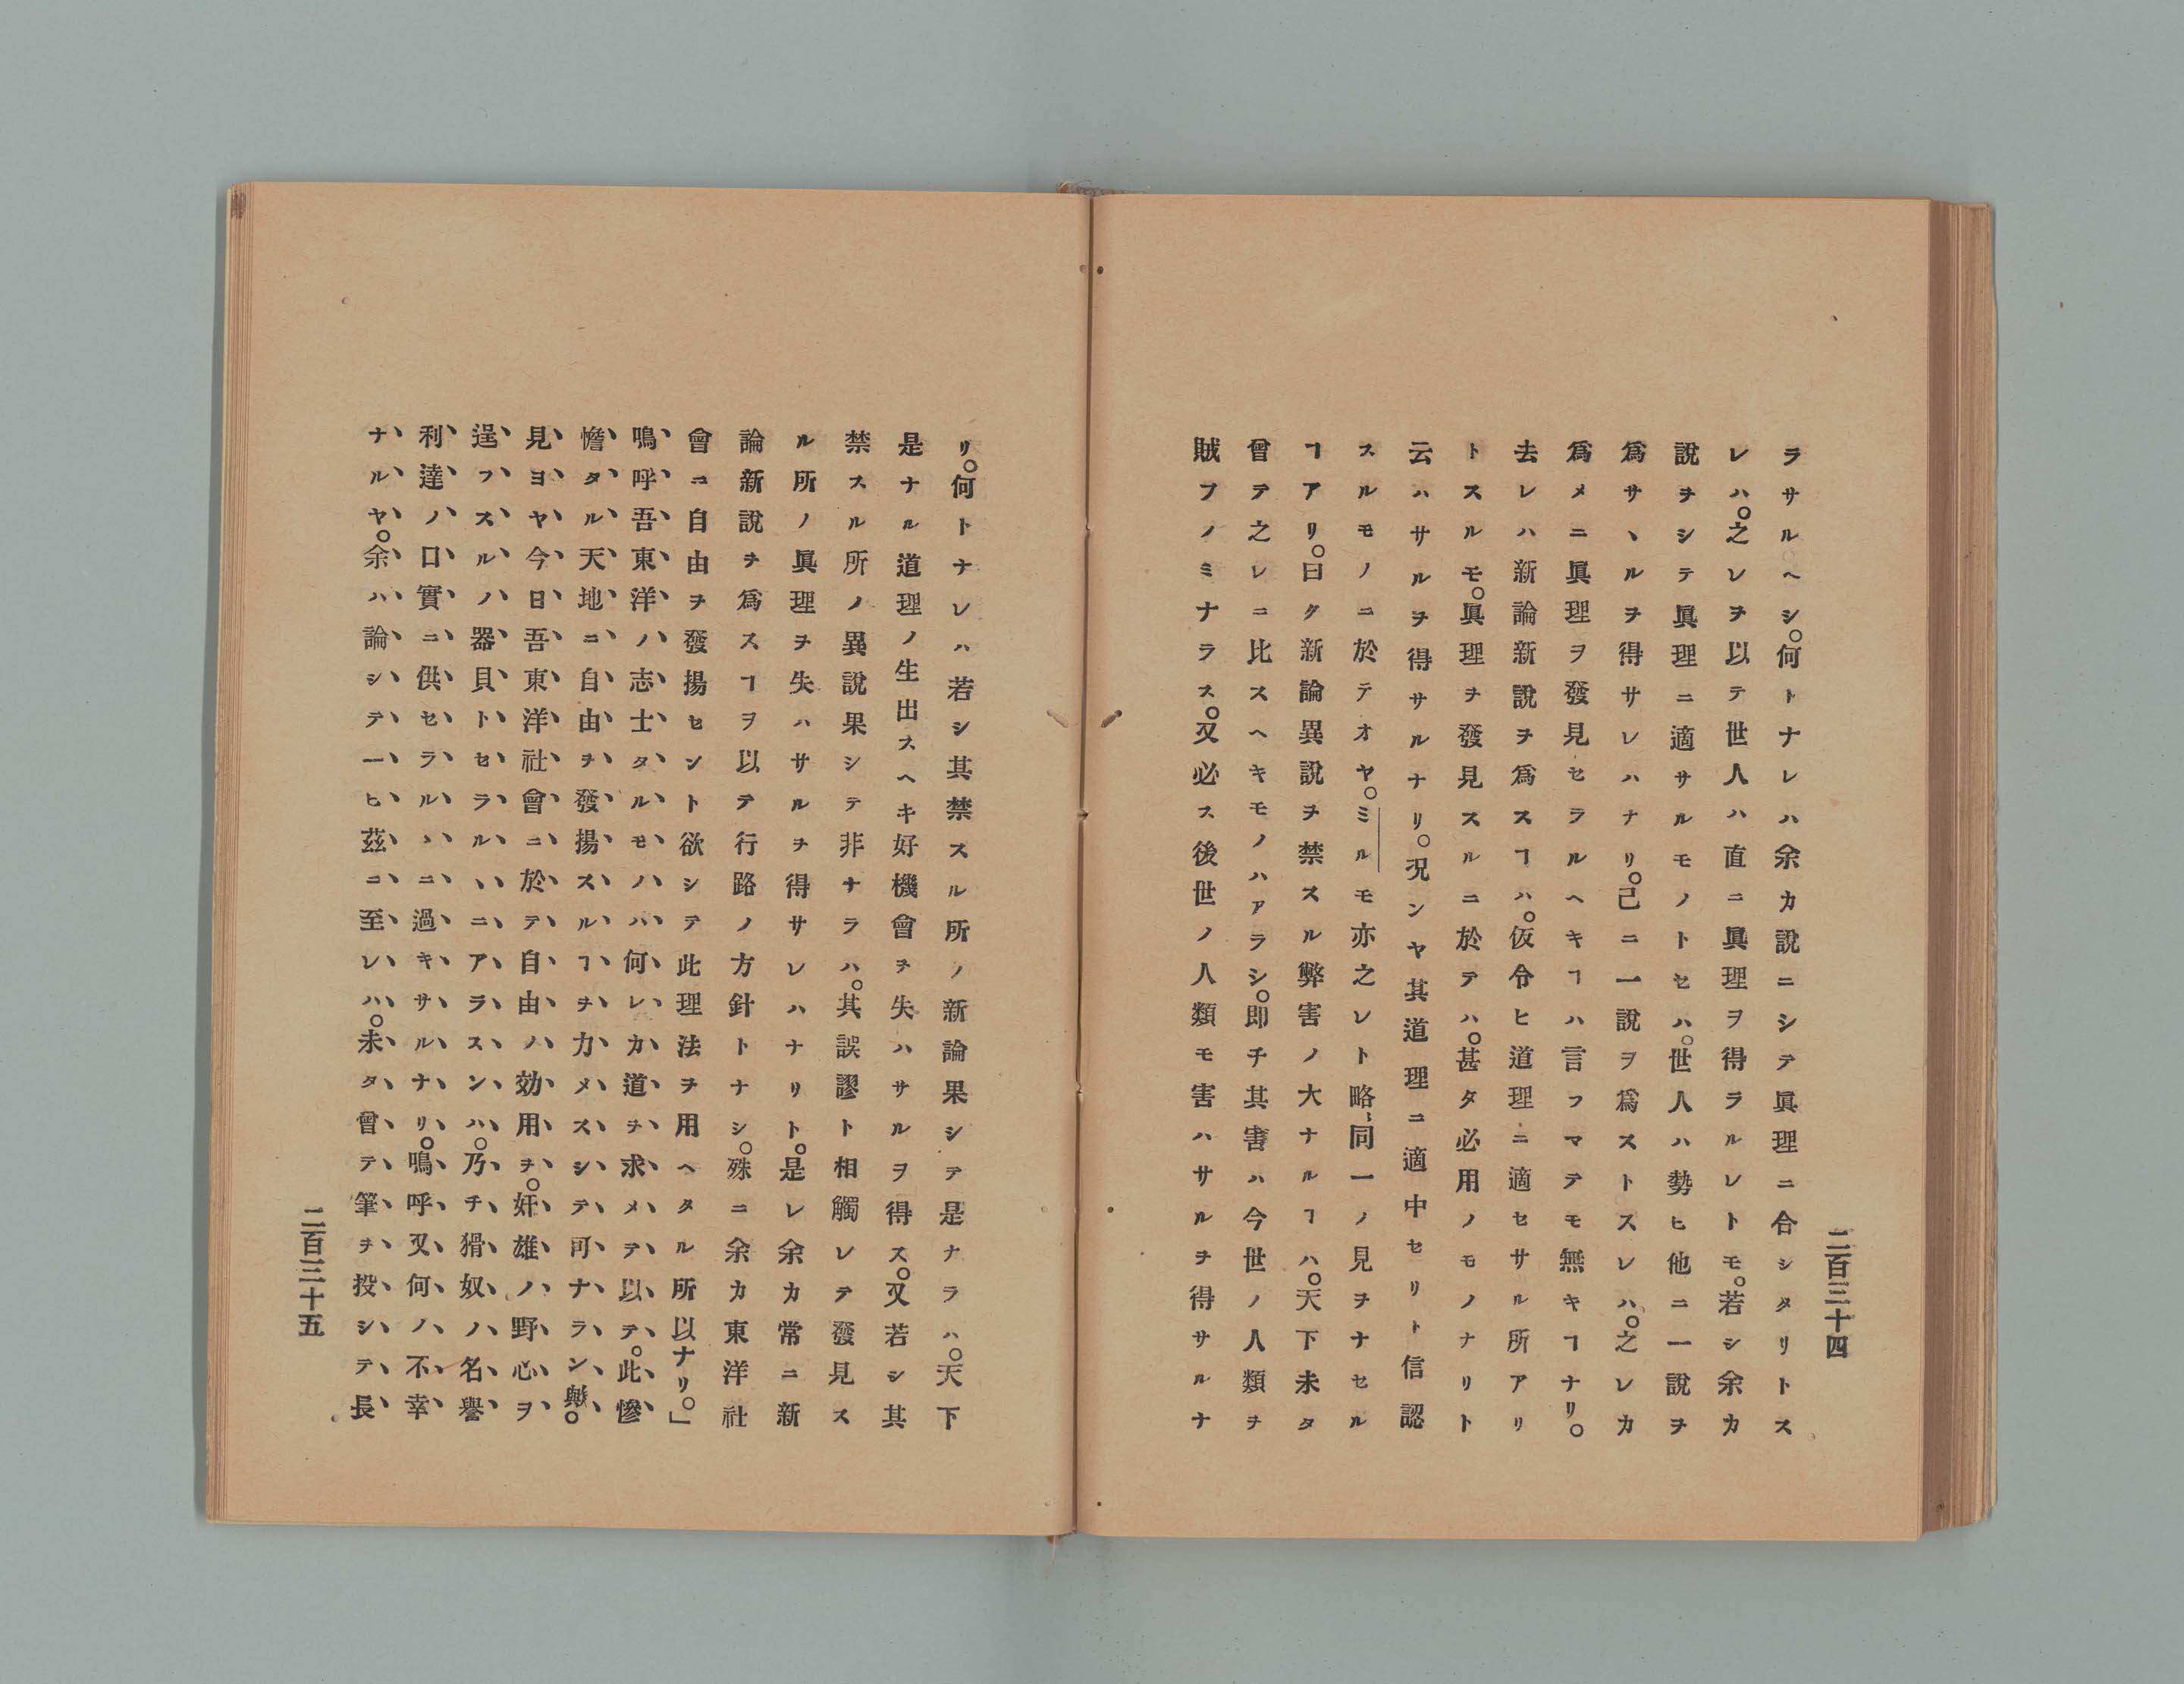 二百三十四
ラサルヘシ。何トナレハ余カ說ニシテ眞理ニ合シタリトス
レハ。之レヲ以テ世人ハ直ニ眞理ヲ得ラルレトモ。若シ余カ
說ヲシテ眞理ニ適サルモノトセハ。世人ハ勢ヒ他ニ一說ヲ
爲サヽルヲ得サレハナリ。已ニ一說ヲ爲ストスレハ。之レカ
爲メニ眞理ヲ發見セラルヘキヿハ言フマテモ無キヿナリ。
去レハ新論新說ヲ爲スヿハ。仮令ヒ道理ニ適セサル所アリ
トスルモ。眞理ヲ發見スルニ於テハ。甚タ必用ノモノナリト
云ハサルヲ得サルナリ。况ンヤ其道理ニ適中セリト信認
スルモノニ於テオヤ。ミル モ亦之レト略、同一ノ見ヲナセル
ヿアリ。曰ク新論異說ヲ禁スル弊害ノ大ナルヿハ。天下未タ
曾テ之レニ比スヘキモノハアラシ。即チ其害ハ今世ノ人類ヲ
賊フノミナラス。又必ス後世ノ人類モ害ハサルヲ得サルナ
リ。何トナレハ若シ其禁スル所ノ新論果シテ是ナラハ。天下
是ナル道理ノ生出スヘキ好機會ヲ失ハサルヲ得ス。又若シ其
禁スル所ノ異說果シテ非ナラハ。其誤謬ト相觸レテ發見ス
ル所ノ眞理ヲ失ハサルヲ得サレハナリト。是レ余カ常ニ新
論新說ヲ爲スヿヲ以テ行路ノ方針トナシ。殊ニ余カ東洋社
會ニ自由ヲ發揚セント欲シテ此理法ヲ用ヘタル所以ナリ。」
鳴呼吾東洋ノ志士タルモノハ何レカ道ヲ求メテ以テ。此慘
憺タル天地ニ自由ヲ發揚スルヿヲ力メスシテ可ナラン歟。
見ヨヤ今日吾東洋社會ニ於テ自由ノ効用ヲ。奸雄ノ野心ヲ
逞フスルノ器貝トセラルヽニアラスンハ。乃チ猾奴ノ名譽
利達ノ口實ニ供セラルヽニ過キサルナリ。鳴呼又何ノ不幸
ナルヤ。余ハ論シテ一ヒ茲ニ至レハ。未タ曾テ筆ヲ投シテ長
二百三十五